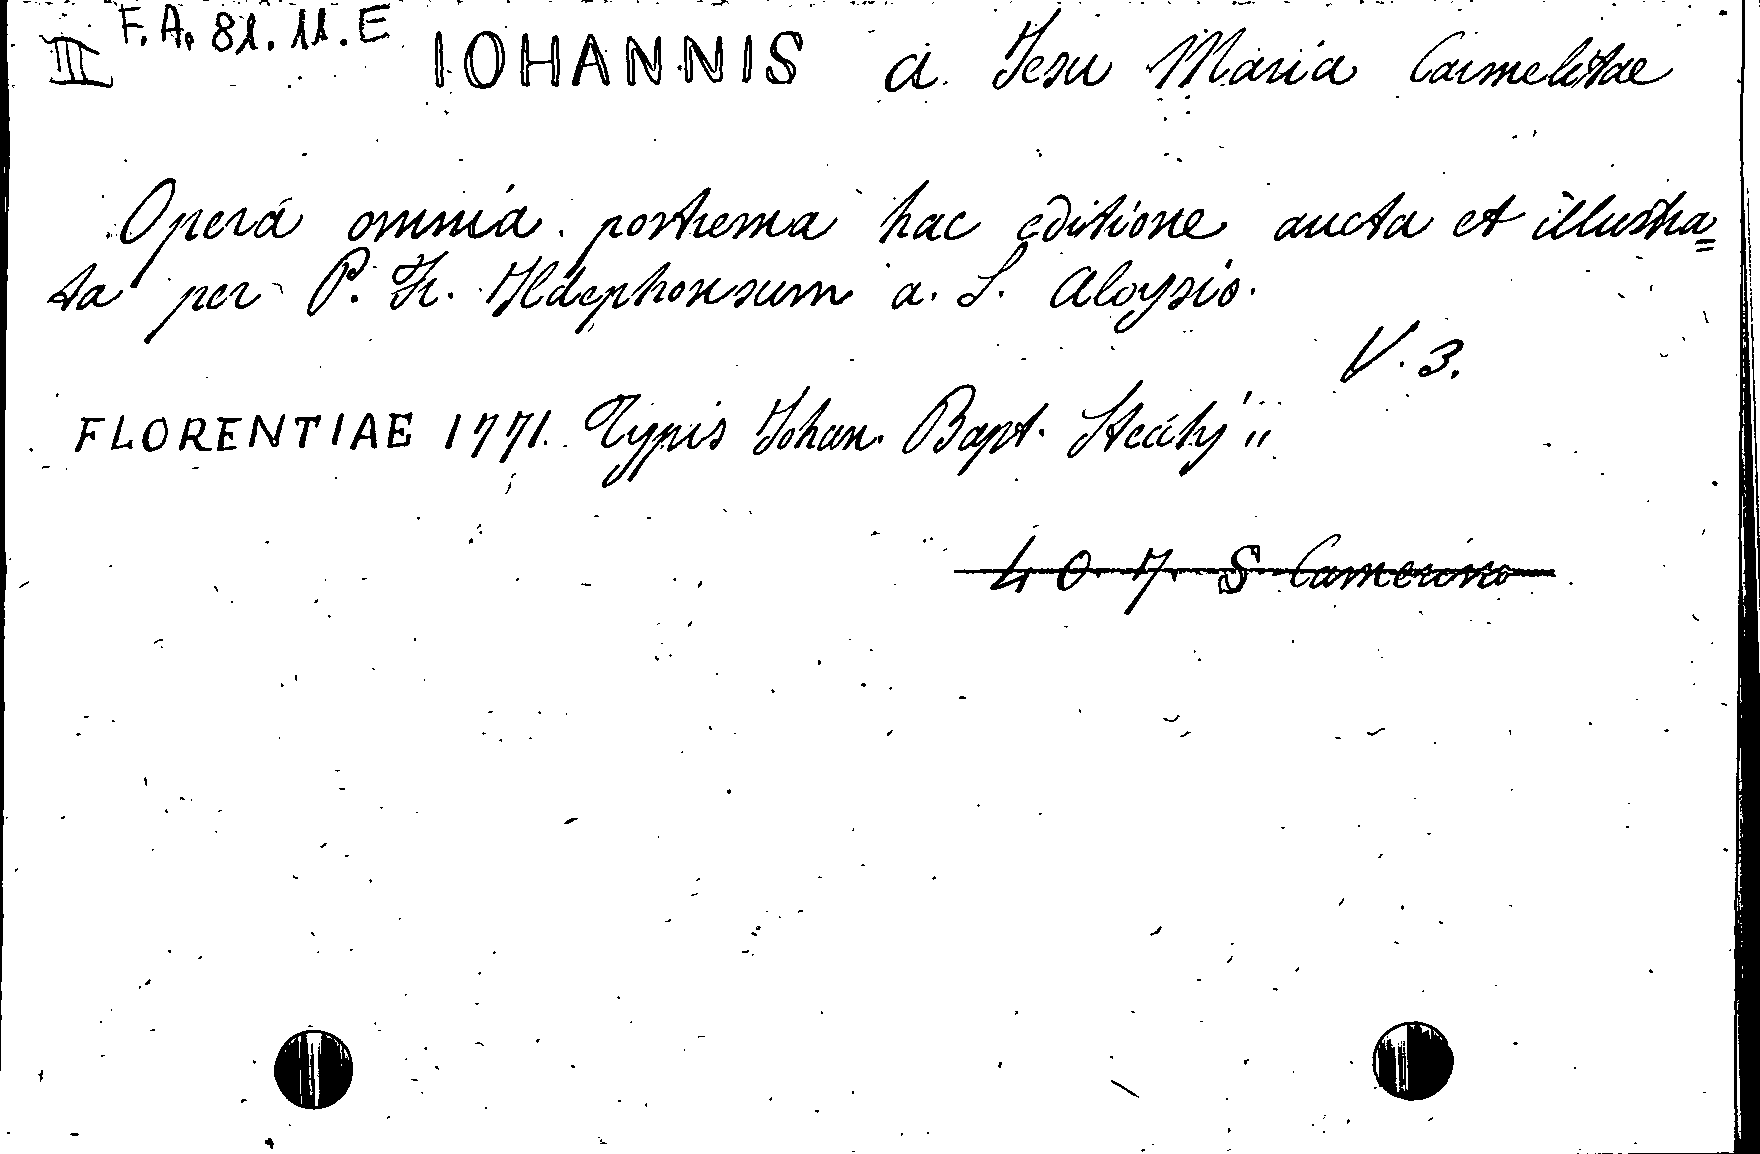 III F.A. 81. 11. E IOHANNIS a Iesu Maria Carmelitae
Opera omnia. postrema hac editione aucta et illustra=
ta per P. Fr. Ildephonsum a. S. Aloysio.
V. 3.
FLORENTIAE 1771. Typis Iohan. Bapt.
4 0. 7. S Camerino